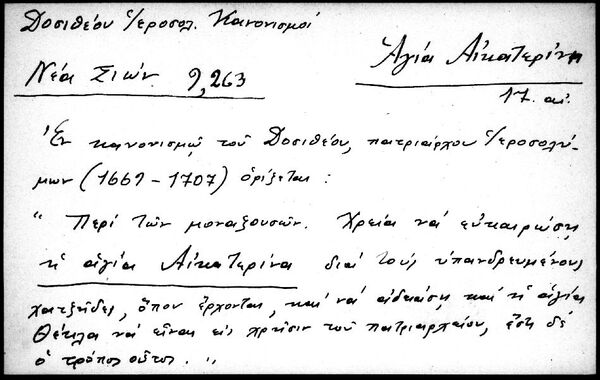 Δοσιθέου Ἱεροσολ. Κανονισμοί
Ἁγία Αἰκατερίνη
Νέα Σιών 9,263
17. αἰ.
Ἐν κανονισμῷ τοῦ Δοσιθέου, πατριάρχου Ἱεροσολύ-
μων (1669 - 1707) ὁρίζεται :
" Περί τῶν μοναζουσῶν. Χρεία νά εὐκαιρώση
ἡ ἁγία Αἰκατερίνα διά τούς ὑπανδρευμένους
χατζῆδες, ὅπου ἔρχονται, καί νά ἀδειάση καί ἡ ἁγία
Θέκλα νά εἶναι εἰς χρῆσιν τοῦ πατριαρχείου, ἔστι δέ
ὁ τρόπος οὗτος. "